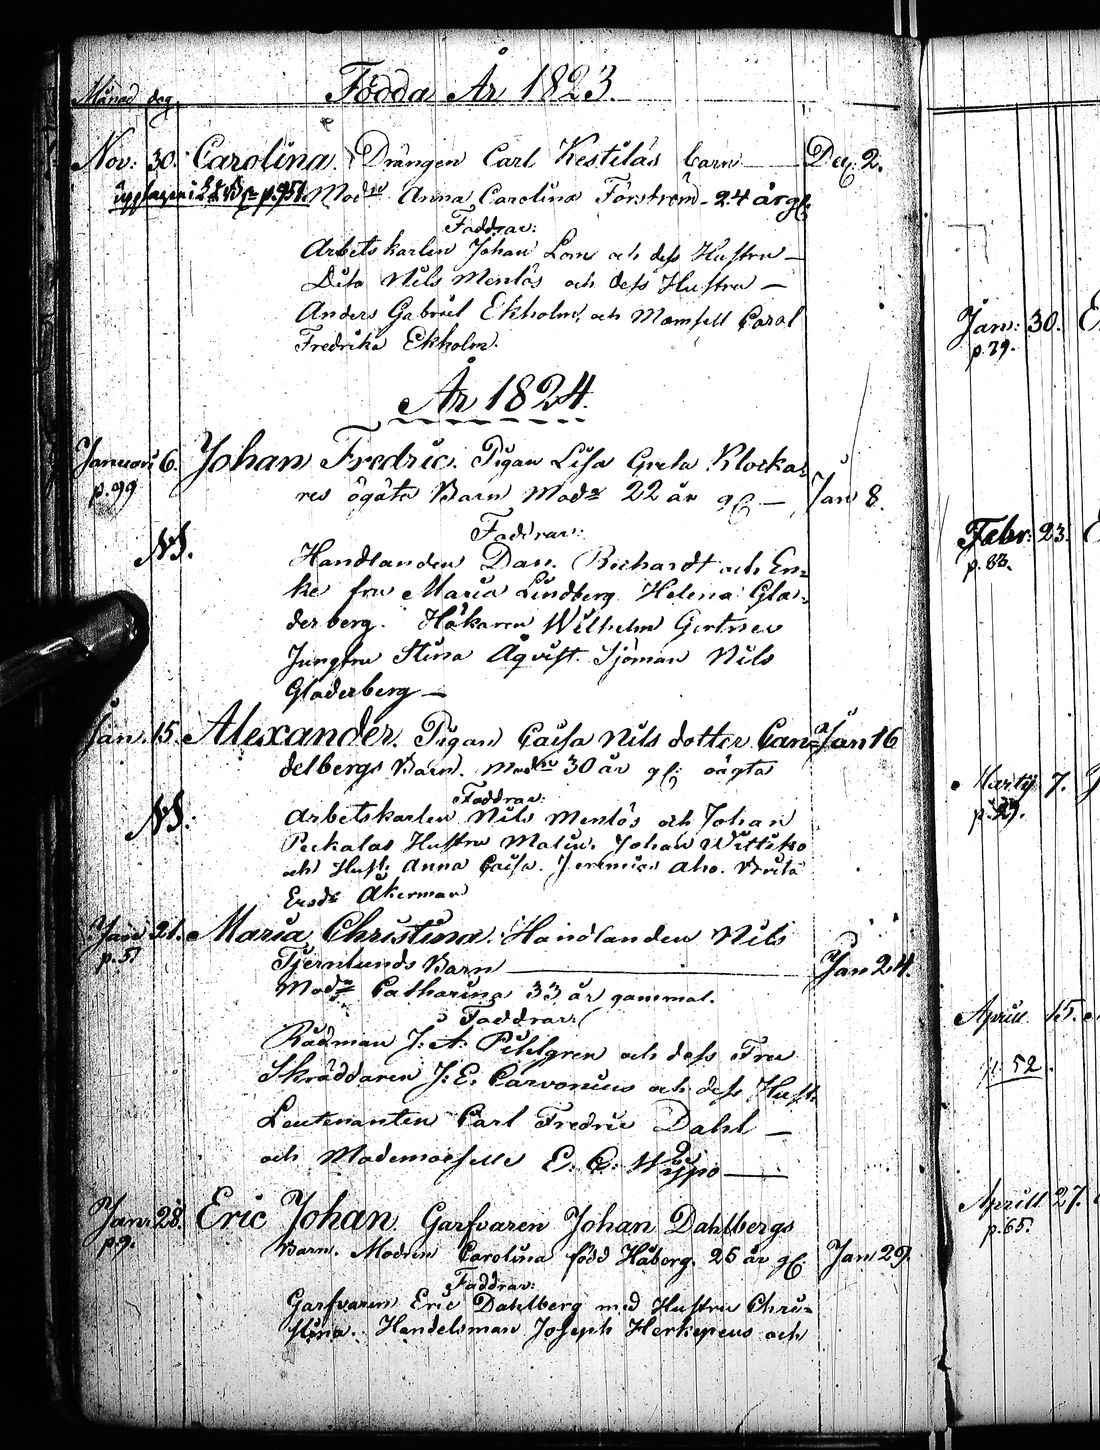 Månad dag. Födda År 1823.
Nov: 30. Carolina. Drängen Carl Kestiläs barn — Dec. 2.
Modn Anna Carolina Forström - 24 år gl.
Faddrar:
Arbetskarlen Johan Lom och dess Hustru —
Dito Nils Menlös och dess Hustru —
Anders Gabriel Ekholm, och Mamsell Carol
Fredrika Ekholm.
År 1824.
Januari 6. Johan Fredric. Pigan Lisa Greta Klocka-
p. 99 res oägta Barn Modr 22 år gl — Jan 8.
Faddrar:
NS. Handlanden Dan. Reichardt och En-
ke fru Maria Lindberg Helena Gla-
derberg. Hökaren Wilhelm Gertner
Jungfru Stina Åqvist. Sjöman Nils
Gladerberg —
Jan. 15. Alexander. Pigan Caisa Nils dotter Can- Jan 16
delbergs Barn. Modrn 30 år gl: oägta
Faddrar:
NS. Arbetskarlen Nils Menlös och Johan
Pickalas Hustru Malin. Johan Wittiko
och Hust. Anna Caisa. Jeremias Aho. Brita
Åkerman
Jan 21. Maria Christina. Handlanden Nils
p. 5 Tjernlunds Barn — Jan 24.
Modr Catharina 33 år gammal.
Faddrar:
Rådman J: A: Pihlgren och dess Fru
Skräddaren J: E. Carvonius och dess Hust.
Leutenanten Carl Fredric Dahl —
och Mademoiselle E: C:
Jan: 28. Eric Johan. Garfvaren Johan Dahlbergs
p. 9. Barn. Modren Carolina född Håberg. 25 år gl. Jan 29.
Faddrar:
Garfvaren Eric Dahlberg med Hustru Chri-
stina. Handelsman Joseph Herkepeus och
Jan: 30.
p. 79.
Febr: 23.
p. 63.
Martij 7.
p. 29.
Aprill 15.
p. 52
Aprill 27.
p. 65.